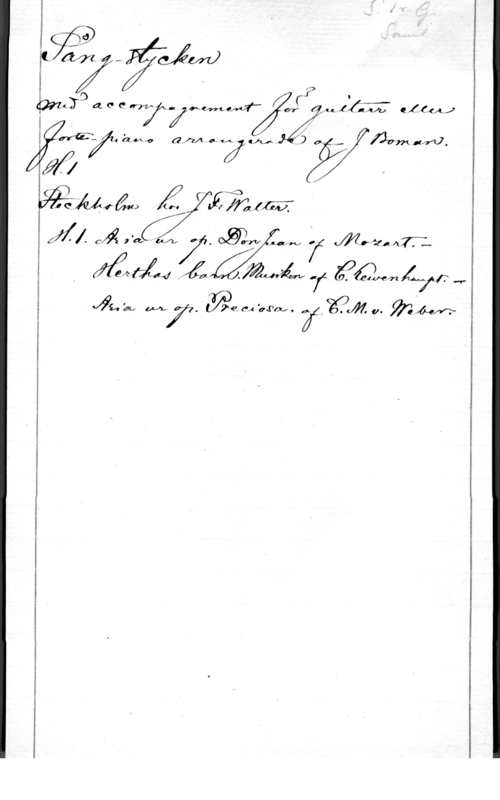 S. Tr. G.
Sång-stycken
med accompagnement för guitarr eller
forte-piano arrangerade af J Boman.
H. 1
Stockholm hos J. F. Walter.
H. 1. Aria ur op. Don Juan af Mozart. –
Herthas barn. Musiken af C. Lewenhaupt. –
Aria ur op. Preciosa. af C. M. v. Weber. –